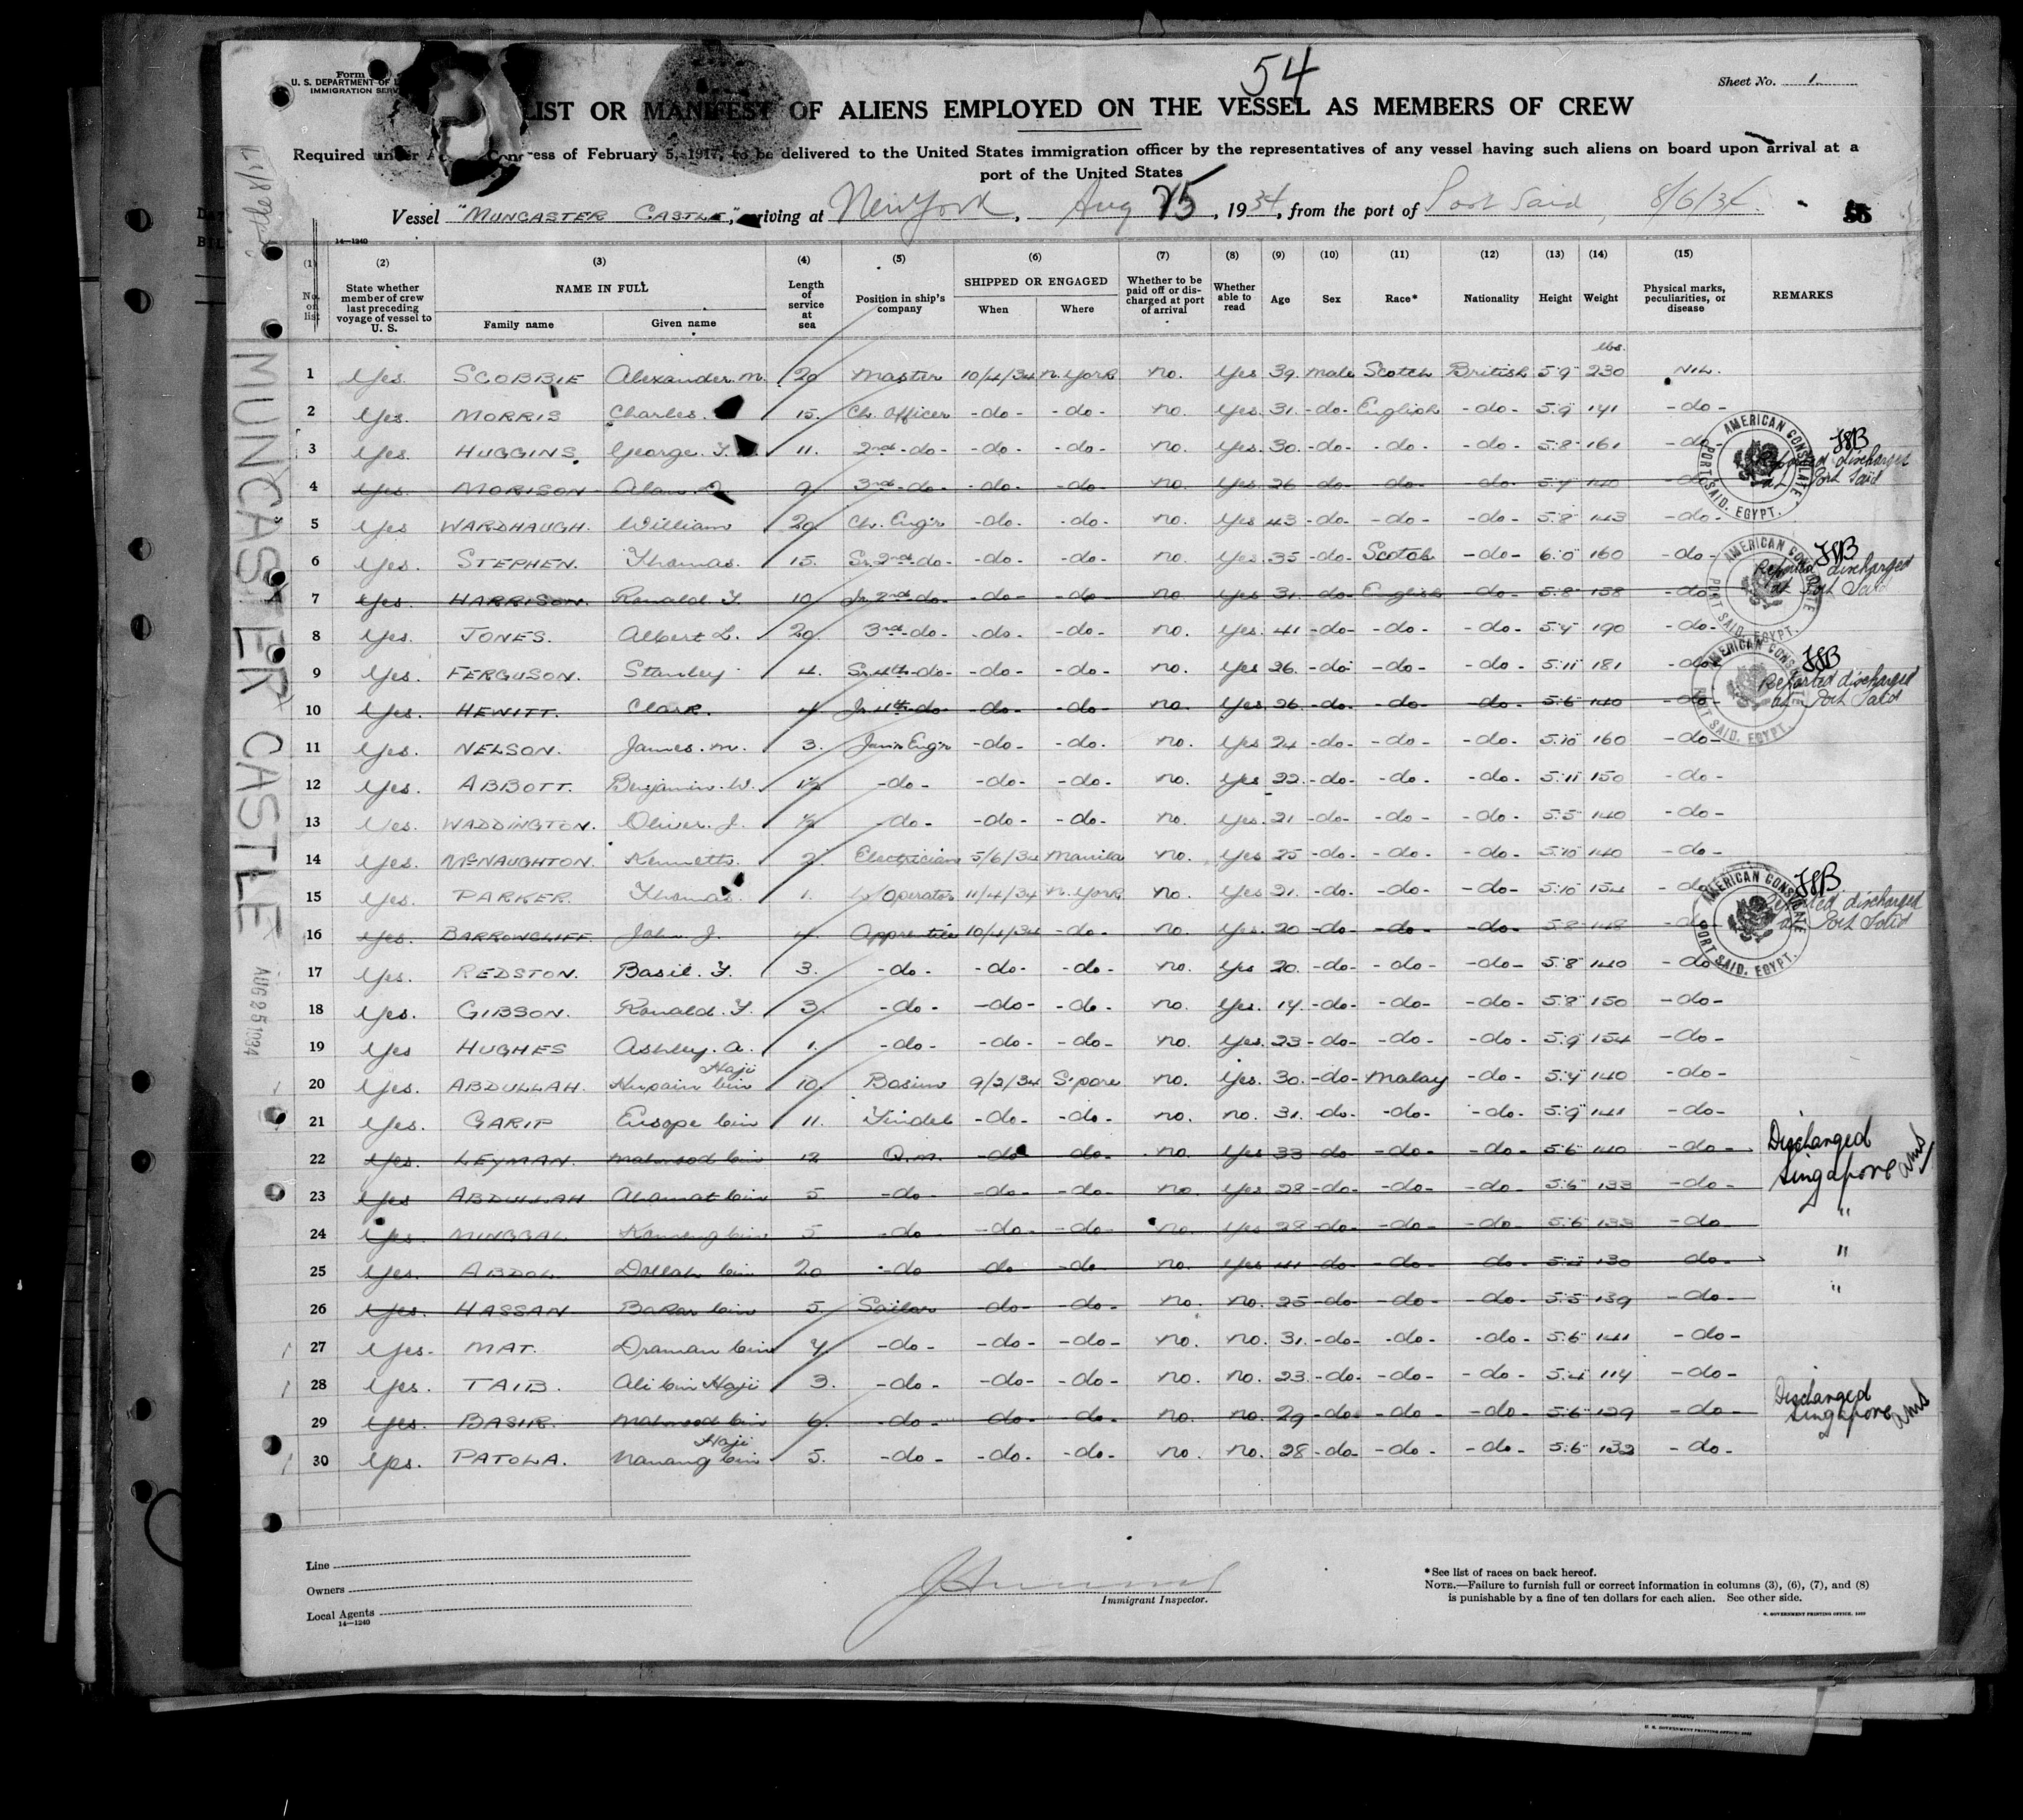 54
Form
U. S. DEPARTMENT OF
IMMIGRATION SERV
Sheet No. 1
LIST OR MANIFEST OF ALIENS EMPLOYED ON THE VESSEL AS MEMBERS OF CREW
Required under Congress of February 5, 1917, to be delivered to the United States immigration officer by the representatives of any vessel having such aliens on board upon arrival at a
port of the United States
Vessel "MUNCASTER CASTLE", arriving at New York, Aug 25, 1934, from the port of Port Said, 8/6/34.
14—1240
(1) (2) (3) (4) (5) (6) (7) (8) (9) (10) (11) (12) (13) (14) (15)
No. on list
State whether member of crew last preceding voyage of vessel to U. S.
NAME IN FULL
Family name Given name
Length of service at sea
Position in ship's company
SHIPPED OR ENGAGED
When Where
Whether to be paid off or discharged at port of arrival
Whether able to read
Age Sex Race* Nationality Height Weight
Physical marks, peculiarities, or disease
REMARKS
lbs.
1 Yes. SCOBBIE Alexander. M. 20 Master 10/4/34 N. York no. Yes 39. male Scotch British 5'9" 230 NIL.
2 Yes. MORRIS Charles. 15. Ch. Officer -do- -do- no. Yes. 31. -do- English -do- 5'9" 141 -do-
3 Yes HUGGINS. George. 11. 2nd -do- -do- -do- no. Yes. 30. -do- -do- -do- 5'8" 161 -do-
4 Yes. MORISON Alan 9. 3rd -do- -do- -do- no. Yes 26 -do- -do- -do- 140 -do- Reported discharged at Port Said JSB
5 Yes WARDHAUGH. William 20. Ch. Eng'r -do- -do- no. Yes 43 -do- -do- -do- 5'8" 143 -do-
6 Yes. STEPHEN. Thomas. 15. Sr. 2nd -do- -do- -do- no. Yes. 35 -do- Scotch -do- 6'0" 160 -do-
7 Yes. HARRISON. Ronald. 10 Jr. 2nd -do- -do- -do- no Yes 31. -do- English -do- 5'8" 158 -do- Reported discharged at Port Said JSB
8 Yes. JONES. Albert L. 20. 3rd -do- -do- -do- no. Yes. 41 -do- -do- -do- 190 -do-
9 Yes. FERGUSON. Stanley 4. Sr. 4th -do- -do- -do- no. Yes 26. -do- -do- -do- 5'11" 181 -do-
10 Yes. HEWITT. Clark. 4. Jr. 4th -do- -do- -do- no. Yes. 26. -do- -do- -do- 5'6" 140 -do- Reported discharged at Port Said JSB
11 Yes. NELSON. James. M. 3. Jun'r Eng'r -do- -do- no. Yes 24 -do- -do- -do- 5'10" 160 -do-
12 Yes. ABBOTT. Benjamin. W. -do- -do- -do- no. Yes 22. -do- -do- -do- 5'11" 150 -do-
13 Yes. WADDINGTON. Oliver. J. -do- -do- -do- no. Yes. 21 -do- -do- -do- 5'5" 140 -do-
14 Yes. McNAUGHTON. Kenneth. 2. Electrician 5/6/34 Manila no. Yes 25 -do- -do- -do- 5'10" 140 -do-
15 Yes. PARKER. Thomas. 1. W/Operator 11/4/34 N. York no. Yes 21. -do- -do- -do- 5'10" 154 -do-
16 Yes. BARROWCLIFF. John J. 4. Apprentice 10/4/34 -do- no. Yes. 20 -do- -do- -do- 5'8" 148 -do- Reported discharged at Port Said JSB
17 Yes. REDSTON. Basil. 3. -do- -do- -do- no. Yes 20. -do- -do- -do- 5'8" 140 -do-
18 Yes. GIBSON. Ronald. 3. -do- -do- -do- no. Yes. 19. -do- -do- -do- 5'8" 150 -do-
19 Yes HUGHES Ashley. A. 1. -do- -do- -do- no. Yes. 23 -do- -do- -do- 5'9" 154 -do-
20 Yes. ABDULLAH. Haji bin 10. 9/2/34 S'pore no. Yes. 30. -do- Malay -do- 140 -do-
21 Yes. GARIP bin 11. Tindel -do- -do- no. no. 31. -do- -do- -do- 5'9" 141 -do-
22 Yes. LEYMAN. Mahmood bin 12 Q.M. -do- -do- no. Yes 33 -do- -do- -do- 5'6" 140 -do- Discharged Singapore
23 Yes ABDULLAH Ahamat bin 5 -do- -do- -do- no. Yes 28 -do- -do- -do- 5'6" 133 -do- "
24 Yes. MINGGAL bin 5 -do- -do- -do- no. Yes 28 -do- -do- -do- 5'6" 133 -do- "
25 Yes. ABDOL Dollah bin 20 -do -do -do no. Yes 41 -do- -do- -do- 130 -do- "
26 Yes. HASSAN Bakar bin 5. Sailor -do- -do- no. no. 25 -do- -do- -do- 5'5" 139 -do-
27 Yes. MAT. Draman bin 7. -do- -do- -do- no. no. 31. -do- -do- -do- 5'6" 141 -do-
28 Yes. TAIB. Ali bin Haji 3. -do- -do- -do- no. no. 23. -do- -do- -do- 5'4" 119 -do-
29 Yes. BASIR. Mahmood bin 6. -do- -do- -do- no. no. 29 -do- -do- -do- 5'6" 129 -do- Discharged Singapore
30 Yes. PATOLA. Nanang Haji bin 5. -do- -do- -do- no. no. 28 -do- -do- -do- 5'6" 132 -do-
AMERICAN CONSULATE PORT SAID, EGYPT.
AMERICAN CONSULATE PORT SAID, EGYPT.
AMERICAN CONSULATE PORT SAID, EGYPT.
AMERICAN CONSULATE PORT SAID, EGYPT.
MUNCASTER CASTLE
AUG 25 1934
Line
Owners
Local Agents
14—1240
Immigrant Inspector.
*See list of races on back hereof.
NOTE.—Failure to furnish full or correct information in columns (3), (6), (7), and (8)
is punishable by a fine of ten dollars for each alien. See other side.
GOVERNMENT PRINTING OFFICE
U. S. GOVERNMENT PRINTING OFFICE